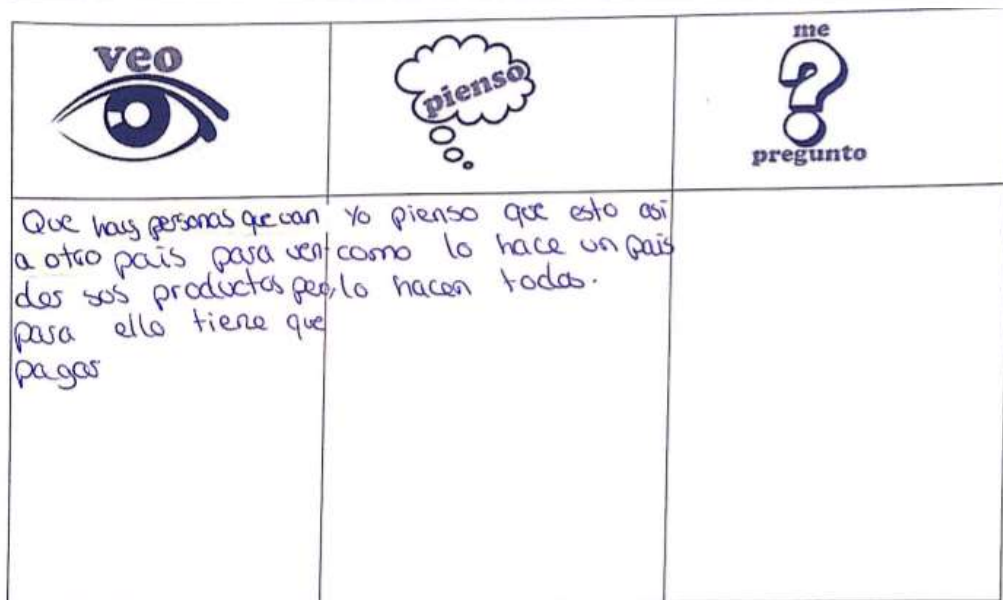 veo
pienso
me
?
pregunto
Que hay personas que van
a otro país para ven
der sus productos pero,
para ello tiene que
pagar
Yo pienso que esto así
como lo hace un país
lo hacen todos.